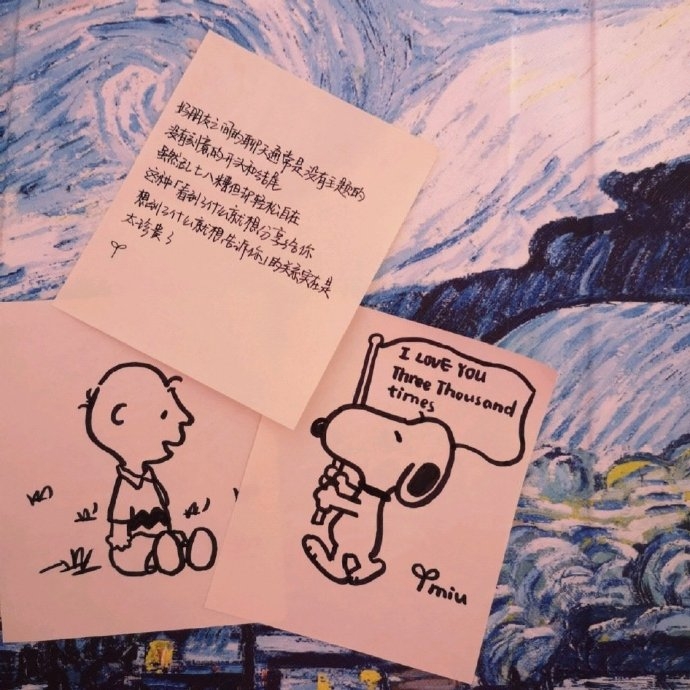 好朋友之间的聊天通常是没有主题的
没有刻意的开头和结尾
虽然乱七八糟但却轻松自在
这种「看到了什么就想分享给你
想到了什么就想告诉你」的关系实在是
太珍贵了
I LOVE YOU
Three Thousand
times
miu